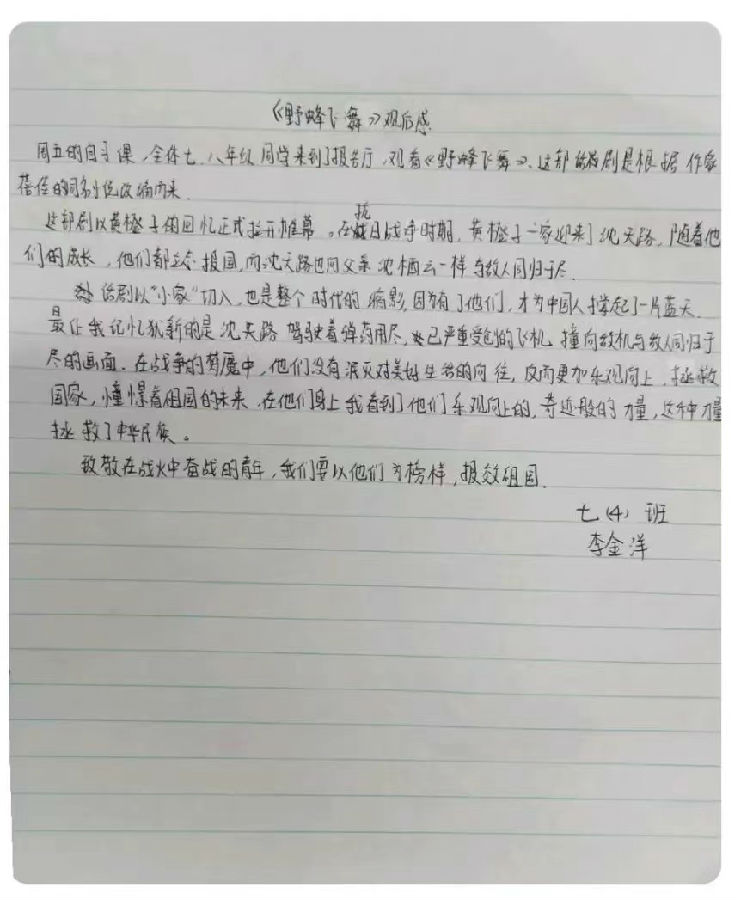 《野蜂飞舞》观后感
周五的自习课,全体七、八年级同学来到了报告厅,观看《野蜂飞舞》、这部话剧是根据作家
蓓佳的同名小说改编而来
这部剧以黄橙子的回忆正式拉开帷幕。在抗日战争时期,黄橙子一家迎来了沈天路,随着他
们的成长,他们都立志报国,而沈天路也同父亲沈栖云一样与敌人同归于尽.
话剧以"小家"切入,也是整个时代的缩影,因为有了他们,才为中国人撑起了一片蓝天.
最让我记忆犹新的是沈天路驾驶着弹药用尽,已严重受创的飞机,撞向敌机与敌人同归于
尽的画面.在战争的梦魇中,他们没有泯灭对美好生活的向往,反而更加乐观向上,拯救
国家,憧憬着祖国的未来,在他们身上我看到了他们乐观向上的,奇迹般的力量,这种力量
拯救了中华民族。
致敬在战火中奋战的青年,我们要以他们为榜样,报效祖国.
七(4)班
李金洋